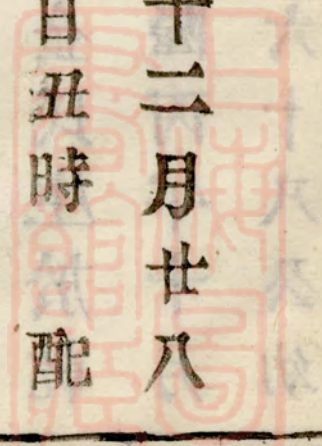 十二月廿八
日丑時　配